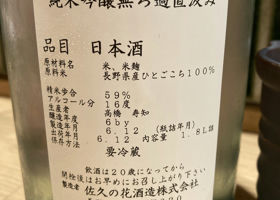 純米吟醸無ろ過直汲み
品目 日本酒
原材料名 米、米麹
原料米 長野県産ひとごこち100%
精米歩合 59%
アルコール分 16度
生産者 高橋 寿知
醸造年度 6by
製造年月 6.12 (瓶詰年月)
出荷年月 6.12 内容量 1.8L詰
保存方法 要冷蔵
飲酒は20歳になってから
開栓後はお早めにお召し上がり下さい
製造者 佐久の花酒造株式会社